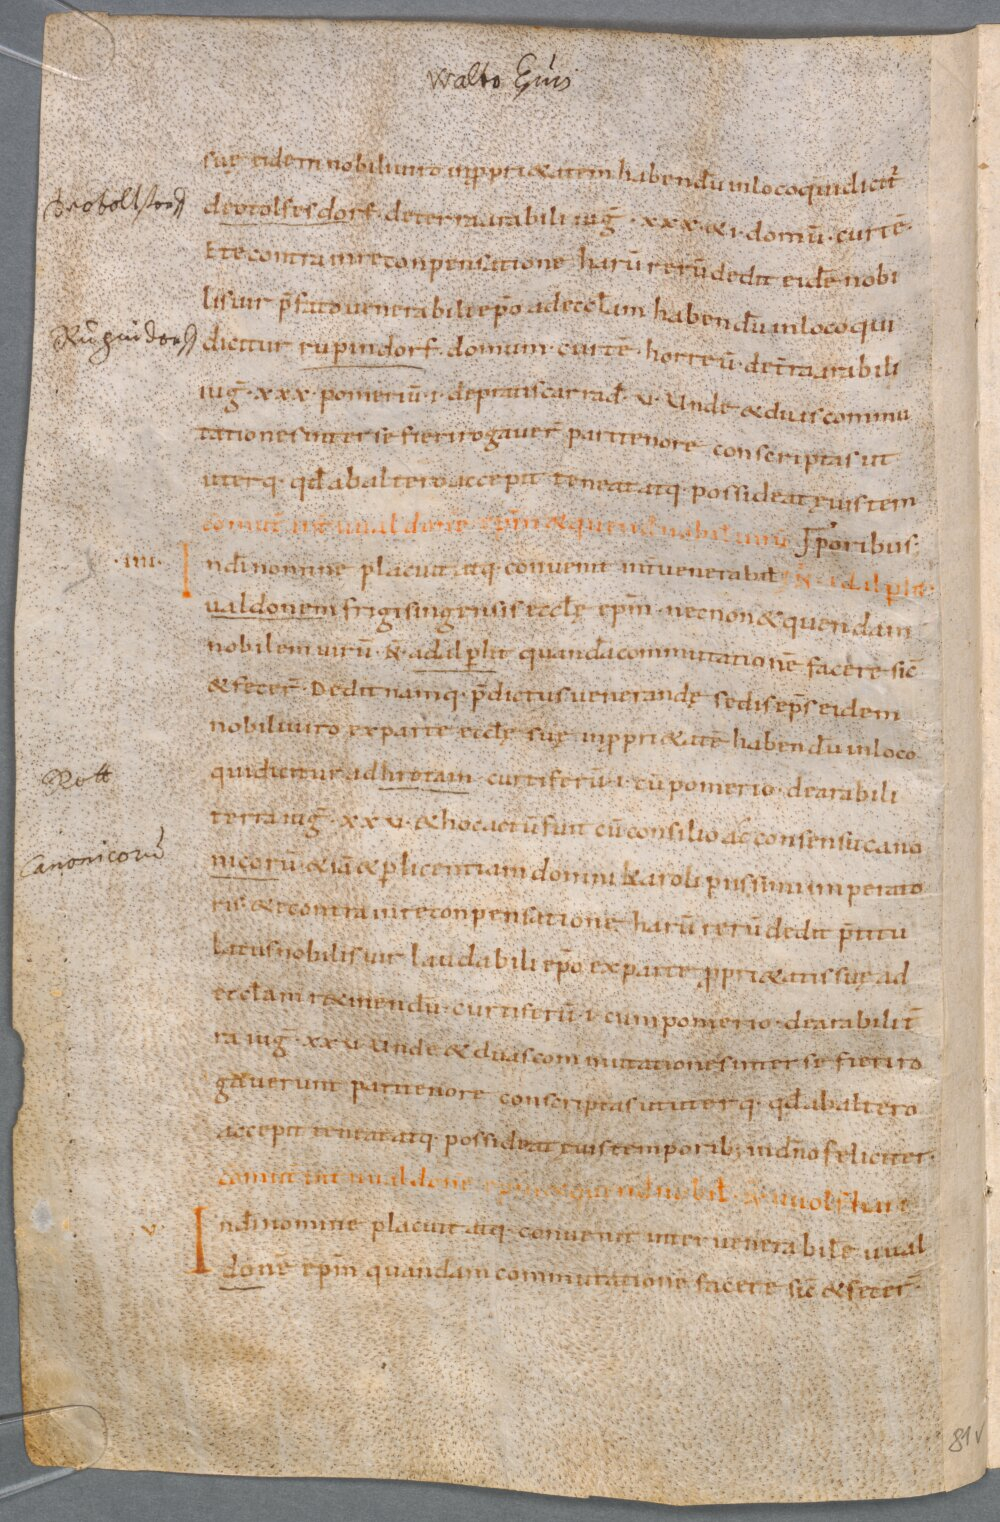 Walto Epūs
suę eidem nobili uiro inp̱pri&atem habendū inlocoquidicit̄
Deoboltstorff
deotolfesdorf · deterra arabili iug̅ · xxx · & · i · domū · curtē ·
Etecontra inreconpensatione harū rerū dedit eidē nobi
lis uir p̄fato uenerabili ep̄o adeccłam habendū inloco qui
Rupendorff
dicitur rupindorf · domum · curtē · horreū · det̄ra arabili
iug̅ · xxx · pomeriū · i · depratis carrad̄ · u · Unde & duas commu
tationes inter se fieri rogauer̄ pari tenore conscriptas ut
uterq · qd̄ abaltero accepit teneat atq · possideat euis tem
comut̄ int̄ uualdonē ep̄m & quendā nobilē uirū poribus ·
· iiii ·
Indī nomine placuit atq · conuenit int̄ uenerabilē N̄ · adalpłit ·
ualdonem frigisingensis eccłę ep̄m · necnon & quendam
nobilem uirū · N̄ · adalpłit quandā commutationē facere sic̄
& fecer̄ · Dedit namq · p̄dictus uenerandę sedis ep̄s eidem
nobili uiro exparte eccłę suę inp̱pri&atē habendū inloco
Rott
quidicitur adhrotam curtiferū · i · cū pomerio · dearabili
terra iug̅ · xxu · & hoc actū fuit cū consilio ac consensu cano
Canonicorū
nicorū & iā & p̱ licentiam domni karoli piissimi imperato
ris & econtra inreconpensatione harū rerū dedit p̄titu
latus nobilis uir laudabili ep̄o exparte p̱pri&atis suę ad
eccłam r&inendū · curtiferū · i · cum pomerio · dearabili t̄
ra iug̅ · xxu · Unde & duas commutationes inter se fieri ro
gauerunt pari tenore conscriptas ut uterq · qd̄ abaltero
accepit teneat atq · possideat euis temporib; indn̄o feliciter ·
comut̄ int̄ uualdonē ep̄m & quendā nobił · N̄ · uuolf
· v ·
Indī nomine placuit atq · conuenit inter uenerabilē uual
donē ep̄m quandam commutationē facere sic̄ & fecer̄ ·
81v